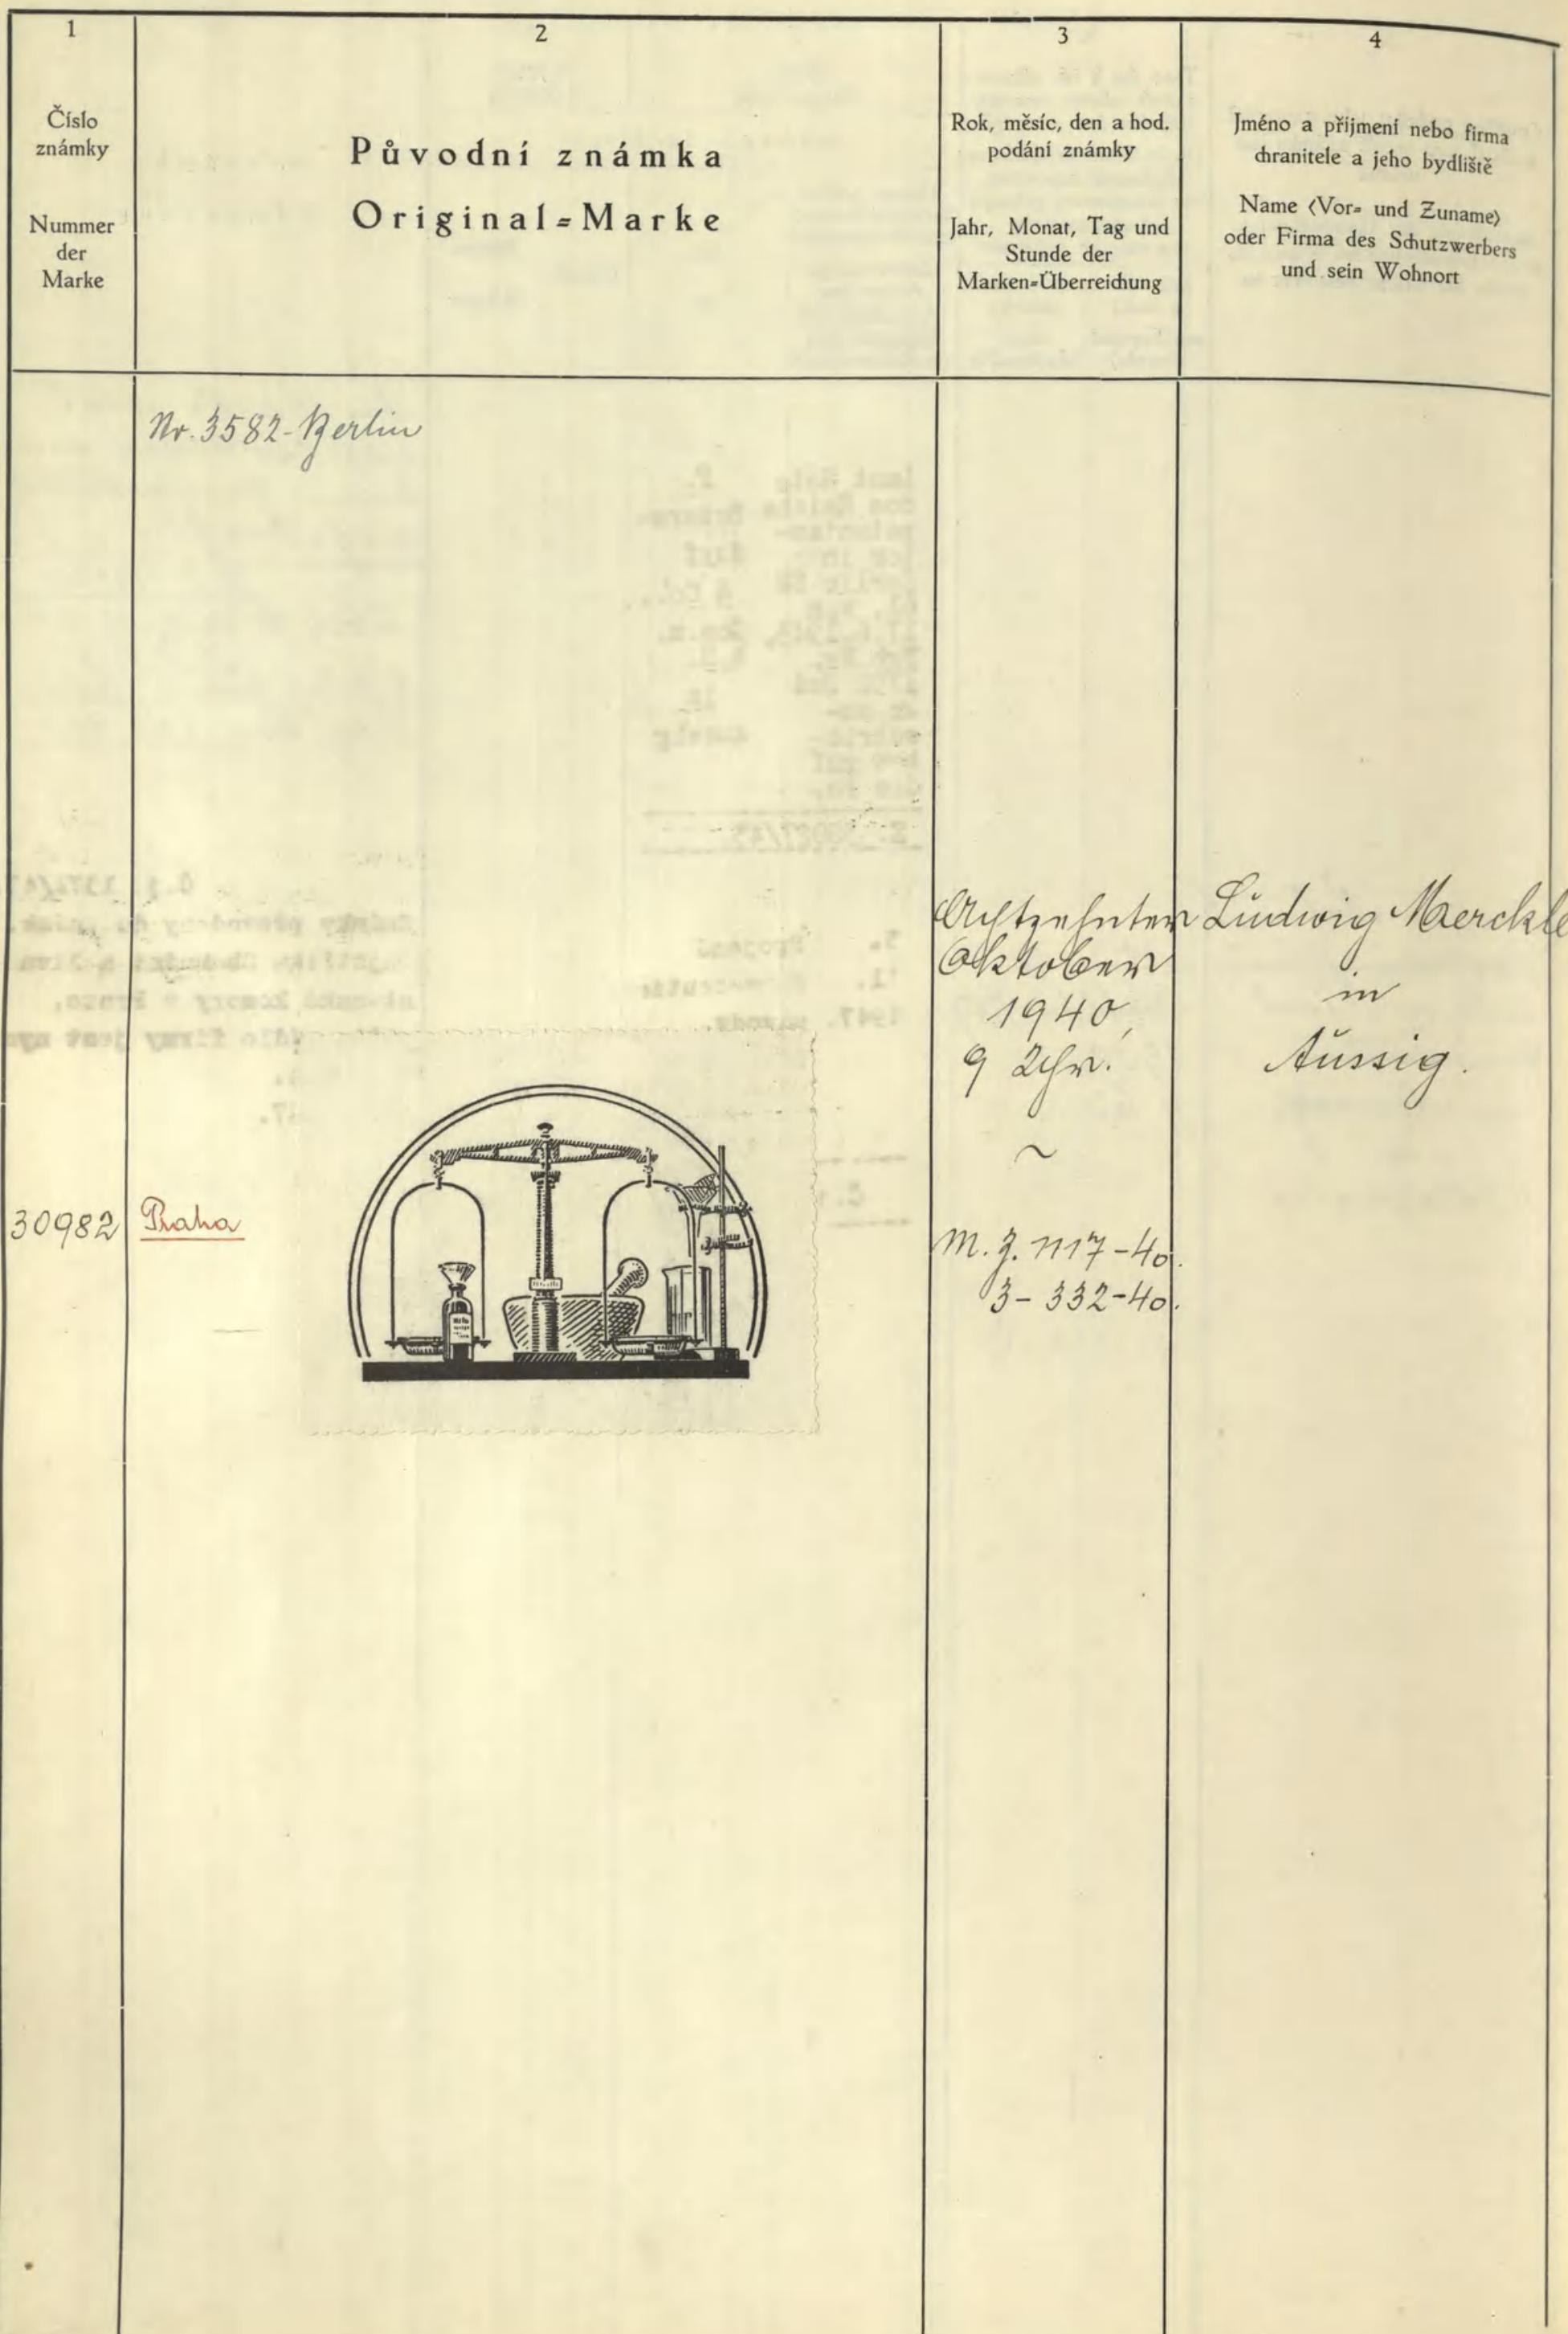 1
Číslo
známky
Nummer
der
Marke
2
Původní známka
Original=Marke
3
Rok, měsíc, den a hod.
podání známky
Jahr, Monat, Tag und
Stunde der
Marken=Überreichung
4
Jméno a příjmení nebo firma
chranitele a jeho bydliště
Name (Vor= und Zuname)
oder Firma des Schutzwerbers
und sein Wohnort
Nr. 3582-Berlin
30982
Praha
Achtzehnten
Oktober
1940,
9 Uhr.
~
M. Z. 1117-40.
3-332-40.
Ludwig Merckle
in
Aussig.